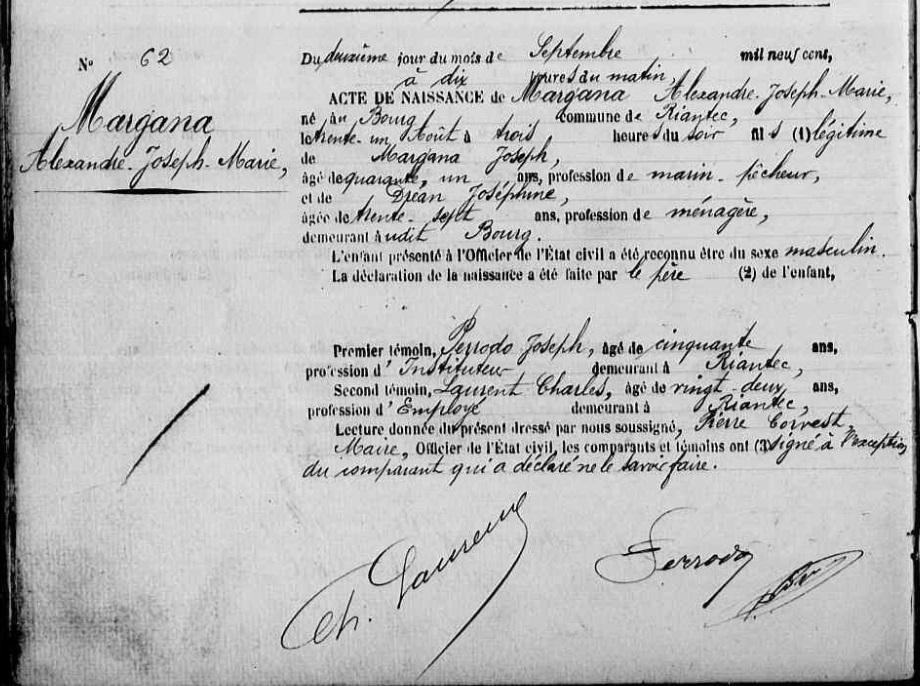 N° 62
Margana
Alexandre-Joseph-Marie,
Du deuxième jour du mois de Septembre mil neuf cent,
à dix heures du matin,
ACTE DE NAISSANCE de Margana Alexandre-Joseph-Marie,
né au Bourg commune de Riantec,
le trente-un Août à trois heures du soir fils (1) légitime
de Margana Joseph,
âgé de quarante, un ans, profession de marin-pêcheur,
et de Dréan Joséphine,
âgée de trente-sept ans, profession de ménagère,
demeurant audit Bourg.
L'enfant présenté à l'Officier de l'État civil a été reconnu être du sexe masculin.
La déclaration de la naissance a été faite par le père (2) de l'enfant,
Premier témoin, Perrodo Joseph, âgé de cinquante ans,
profession d'Instituteur demeurant à Riantec,
Second témoin, Laurent Charles, âgé de vingt-deux ans,
profession d'Employé demeurant à Riantec,
Lecture donnée du présent dressé par nous soussigné, Pierre
Maire, Officier de l'État civil, les comparants et témoins ont (3) signé à l'exception
du comparant qui a déclaré ne le savoir faire.
Ch. Laurent
Perrodo